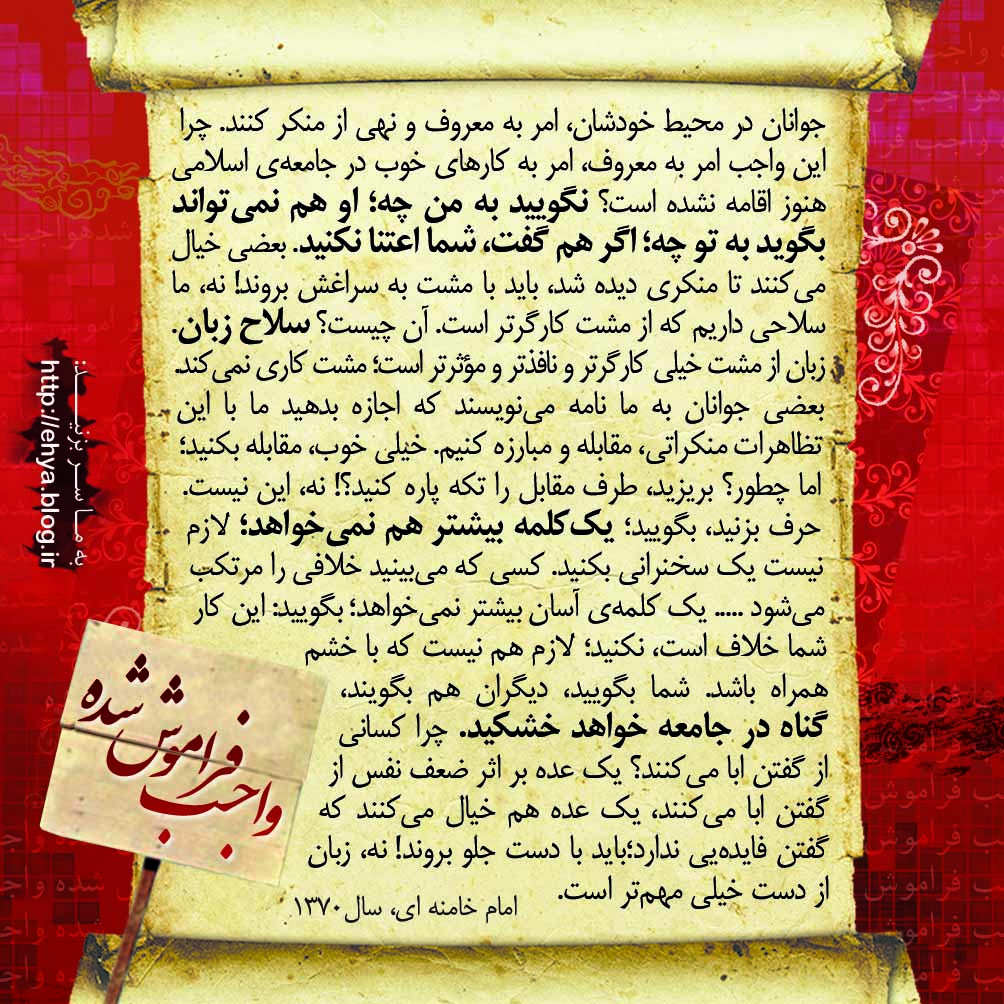 جوانان در محیط خودشان، امر به معروف و نهی از منکر کنند. چرا
این واجب امر به معروف، امر به کارهای خوب در جامعه‌ی اسلامی
هنوز اقامه نشده است؟ نگویید به من چه؛ او هم نمی‌تواند
بگوید به تو چه؛ اگر هم گفت، شما اعتنا نکنید. بعضی خیال
می‌کنند تا منکری دیده شد، باید با مشت به سراغش بروند! نه، ما
سلاحی داریم که از مشت کارگرتر است. آن چیست؟ سلاح زبان.
زبان از مشت خیلی کارگرتر و نافذتر و مؤثرتر است؛ مشت کاری نمی‌کند.
بعضی جوانان به ما نامه می‌نویسند که اجازه بدهید ما با این
تظاهرات منکراتی، مقابله و مبارزه کنیم. خیلی خوب، مقابله بکنید؛
اما چطور؟ بریزید، طرف مقابل را تکه پاره کنید؟! نه، این نیست.
حرف بزنید، بگویید؛ یک‌کلمه بیشتر هم نمی‌خواهد؛ لازم
نیست یک سخنرانی بکنید. کسی که می‌بینید خلافی را مرتکب
می‌شود ..... یک کلمه‌ی آسان بیشتر نمی‌خواهد؛ بگویید: این کار
شما خلاف است، نکنید؛ لازم هم نیست که با خشم
همراه باشد. شما بگویید، دیگران هم بگویند،
گناه در جامعه خواهد خشکید. چرا کسانی
از گفتن ابا می‌کنند؟ یک عده بر اثر ضعف نفس از
گفتن ابا می‌کنند، یک عده هم خیال می‌کنند که
گفتن فایده‌یی ندارد؛باید با دست جلو بروند! نه، زبان
از دست خیلی مهم‌تر است.
امام خامنه ای، سال۱۳۷۰
واجب فراموش شده
به مــا ســر بزنیــــد:
http://ehya.blog.ir